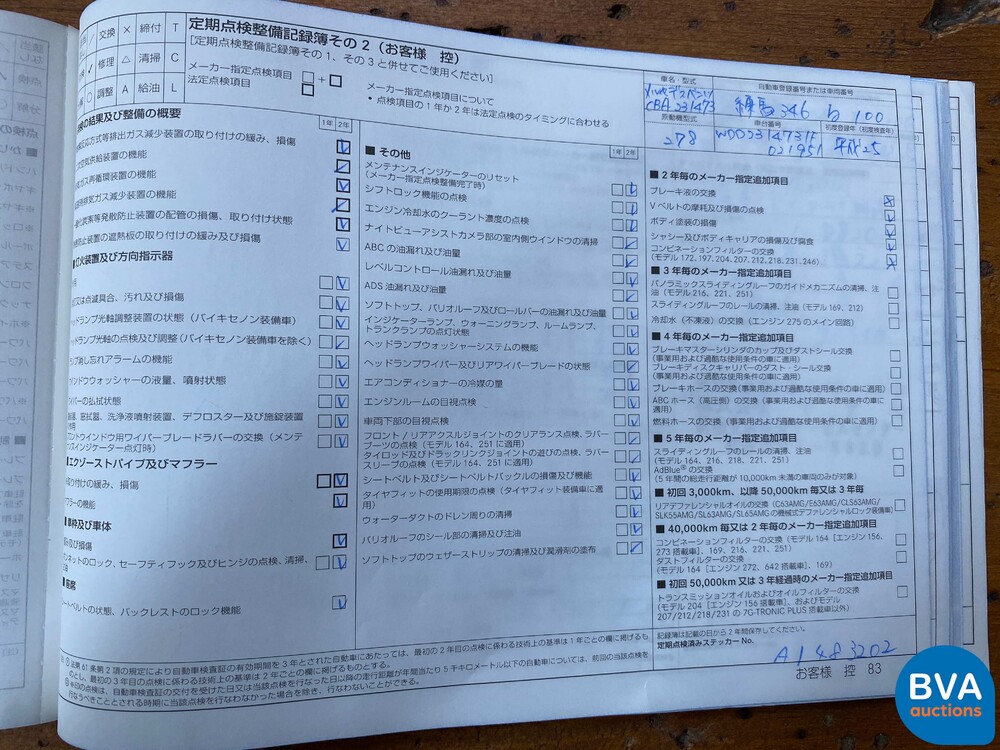 交換 × 締付 T
修理 △ 清掃 C
調整 A 給油 L
定期点検整備記録簿その2（お客様 控）
[定期点検整備記録簿その1、その3と併せてご使用ください]
メーカー指定点検項目 □+□
法定点検項目 □
メーカー指定点検項目について
・点検項目の1年か2年は法定点検のタイミングに合わせる
車名・型式
メルセデスベンツ
CBA 231473
自動車登録番号または車両番号
練馬 346 ら 100
原動機型式
278
車台番号
WDD2314731F
021951
初度登録年（初度検査年）
平成25
の結果及び整備の概要
1年 2年
等排出ガス減少装置の取り付けの緩み、損傷
空気供給装置の機能
ガス再循環装置の機能
排気ガス減少装置の機能
炭素等発散防止装置の配管の損傷、取り付け状態
防止装置の遮熱板の取り付けの緩み及び損傷
灯火装置及び方向指示器
又は点滅具合、汚れ及び損傷
ヘッドランプ光軸調整装置の状態（バイキセノン装備車）
ヘッドランプ光軸の点検及び調整（バイキセノン装備車を除く）
ランプ消し忘れアラームの機能
ウインドウウォッシャーの液量、噴射状態
ワイパーの払拭状態
窓拭器、洗浄液噴射装置、デフロスター及び施錠装置
フロントウインドウ用ワイパーブレードラバーの交換（メンテナンスインジケーター点灯時）
■エクゾーストパイプ及びマフラー
取り付けの緩み、損傷
マフラーの機能
■車枠及び車体
緩み及び損傷
ボンネットのロック、セーフティフック及びヒンジの点検、清掃、
■座席
シートベルトの状態、バックレストのロック機能
■その他
1年 2年
メンテナンスインジケーターのリセット
（メーカー指定点検整備完了時）
シフトロック機能の点検
エンジン冷却水のクーラント濃度の点検
ナイトビューアシストカメラ部の室内側ウインドウの清掃
ABCの油漏れ及び油量
レベルコントロール油漏れ及び油量
ADS油漏れ及び油量
ソフトトップ、バリオルーフ及びロールバーの油漏れ及び油量
インジケーターランプ、ウォーニングランプ、ルームランプ、
トランクランプの点灯状態
ヘッドランプウォッシャーシステムの機能
ヘッドランプワイパー及びリヤワイパーブレードの状態
エアコンディショナーの冷媒の量
エンジンルームの目視点検
車両下部の目視点検
フロント / リアアクスルジョイントのクリアランス点検、ラバー
ブーツの点検（モデル164、251に適用）
タイロッド及びドラックリンクジョイントの遊びの点検、ラバー
スリーブの点検（モデル164、251に適用）
シートベルト及びシートベルトバックルの損傷及び機能
タイヤフィットの使用期限の点検（タイヤフィット装備車に適
用）
ウォーターダクトのドレン周りの清掃
バリオルーフのシール部の清掃及び注油
ソフトトップのウェザーストリップの清掃及び潤滑剤の塗布
■2年毎のメーカー指定追加項目
ブレーキ液の交換
Vベルトの摩耗及び損傷の点検
ボディ塗装の損傷
シャシー及びボディキャリアの損傷及び腐食
コンビネーションフィルターの交換
（モデル172.197.204.207.212.218.231.246）
■3年毎のメーカー指定追加項目
パノラミックスライディングルーフのガイドメカニズムの清掃、注
油（モデル216、221、251）
スライディングルーフのレールの清掃、注油（モデル169、212）
冷却水（不凍液）の交換（エンジン275のメイン回路）
■4年毎のメーカー指定追加項目
ブレーキマスターシリンダのカップ及びダストシール交換
（事業用および過酷な使用条件の車に適用）
ブレーキディスクキャリパーのダスト・シール交換
（事業用および過酷な使用条件の車に適用）
ブレーキホースの交換（事業用および過酷な使用条件の車に適用）
ABCホース（高圧側）の交換（事業用および過酷な使用条件の車に
適用）
燃料ホースの交換（事業用および過酷な使用条件の車に適用）
■5年毎のメーカー指定追加項目
スライディングルーフのレールの清掃、注油
（モデル164、216、218、221、251）
AdBlue®の交換
（5年間の総走行距離が10,000km未満の車両のみが対象）
■初回3,000km、以降50,000km毎又は3年毎
リアデファレンシャルオイルの交換（C63AMG/E63AMG/CLS63AMG/
SLK55AMG/SL63AMG/SL65AMGの機械式デファレンシャルロック装備車）
■40,000km毎又は2年毎のメーカー指定追加項目
コンビネーションフィルターの交換（モデル164［エンジン156、
273搭載車］、169、216、221、251）
ダストフィルターの交換
（モデル164［エンジン272、642搭載車］、169）
■初回50,000km又は3年経過時のメーカー指定追加項目
トランスミッションオイルおよびオイルフィルターの交換
（モデル204［エンジン156搭載車］、およびモデル
207/212/218/231の7G-TRONIC PLUS搭載車以外）
記録簿は記載の日から2年間保存してください。
定期点検済みステッカー No.
A1483202
法第61条第2項の規定により自動車検査証の有効期間を3年とされた自動車にあたっては、最初の2年目の点検に係わる技術上の基準は1年ごとの欄に掲げるも
のとし、最初の3年目の点検に係わる技術上の基準は2年ごとの欄に掲げるものとする。
印の点検は、自動車検査証の交付を受けた日又は当該点検を行なった日以降の走行距離が年間当たり5千キロメートル以下の自動車については、前回の当該点検を
行なうべきこととされる時期に当該点検を行なわなかった場合を除き、行なわないことができる。
お客様 控 83
BVA
auctions